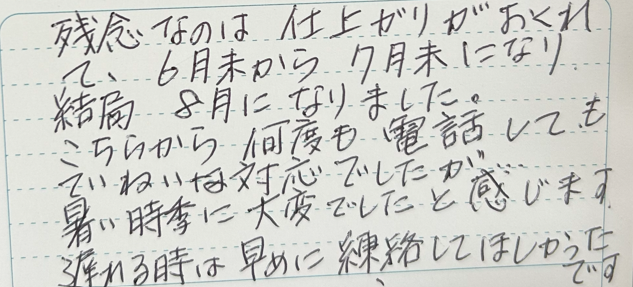 残念なのは 仕上がりがおくれ
て、6月末から 7月末になり
結局 8月になりました。
こちらから 何度も 電話しても
ていねいな対応でしたが…
暑い時季に 大変でしたと感じます
遅れる時は 早めに 練絡してほしかった
です